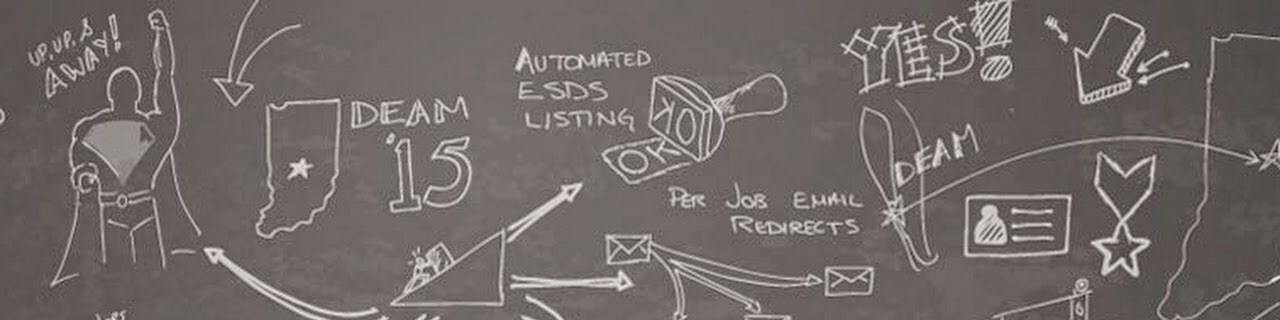 UP, UP, &
AWAY!
DEAM
'15
AUTOMATED
ESDS
LISTING
OK
OK
PER JOB EMAIL
REDIRECTS
YES!
DEAM